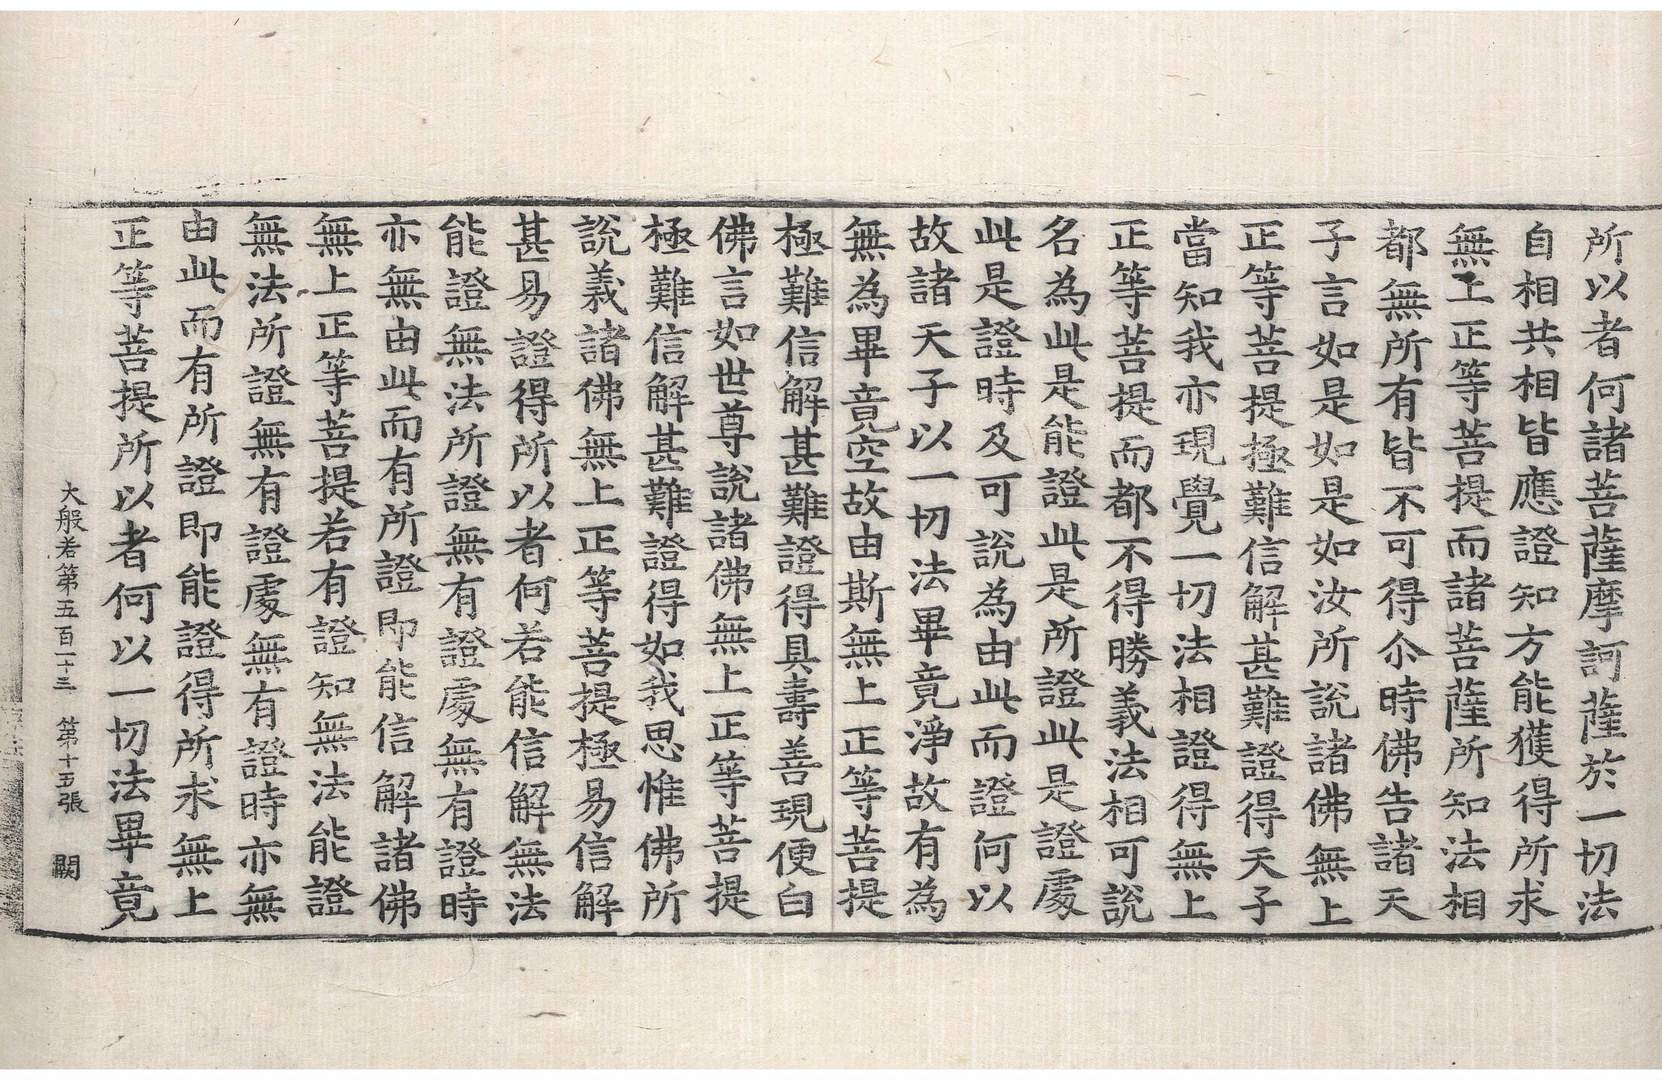 所以者何諸菩薩摩訶薩於一切法
自相共相皆應證知方能獲得所求
無上正等菩提而諸菩薩所知法相
都無所有皆不可得尒時佛告諸天
子言如是如是如汝所說諸佛無上
正等菩提極難信解甚難證得天子
當知我亦現覺一切法相證得無上
正等菩提而都不得勝義法相可說
名為此是能證此是所證此是證處
此是證時及可說為由此而證何以
故諸天子以一切法畢竟淨故有為
無為畢竟空故由斯無上正等菩提
極難信解甚難證得具壽善現便白
佛言如世尊說諸佛無上正等菩提
極難信解甚難證得如我思惟佛所
說義諸佛無上正等菩提極易信解
甚易證得所以者何若能信解無法
能證無法所證無有證處無有證時
亦無由此而有所證即能信解諸佛
無上正等菩提若有證知無法能證
無法所證無有證處無有證時亦無
由此而有所證即能證得所求無上
正等菩提所以者何以一切法畢竟
大般若第五百一十三 第十五張 闕